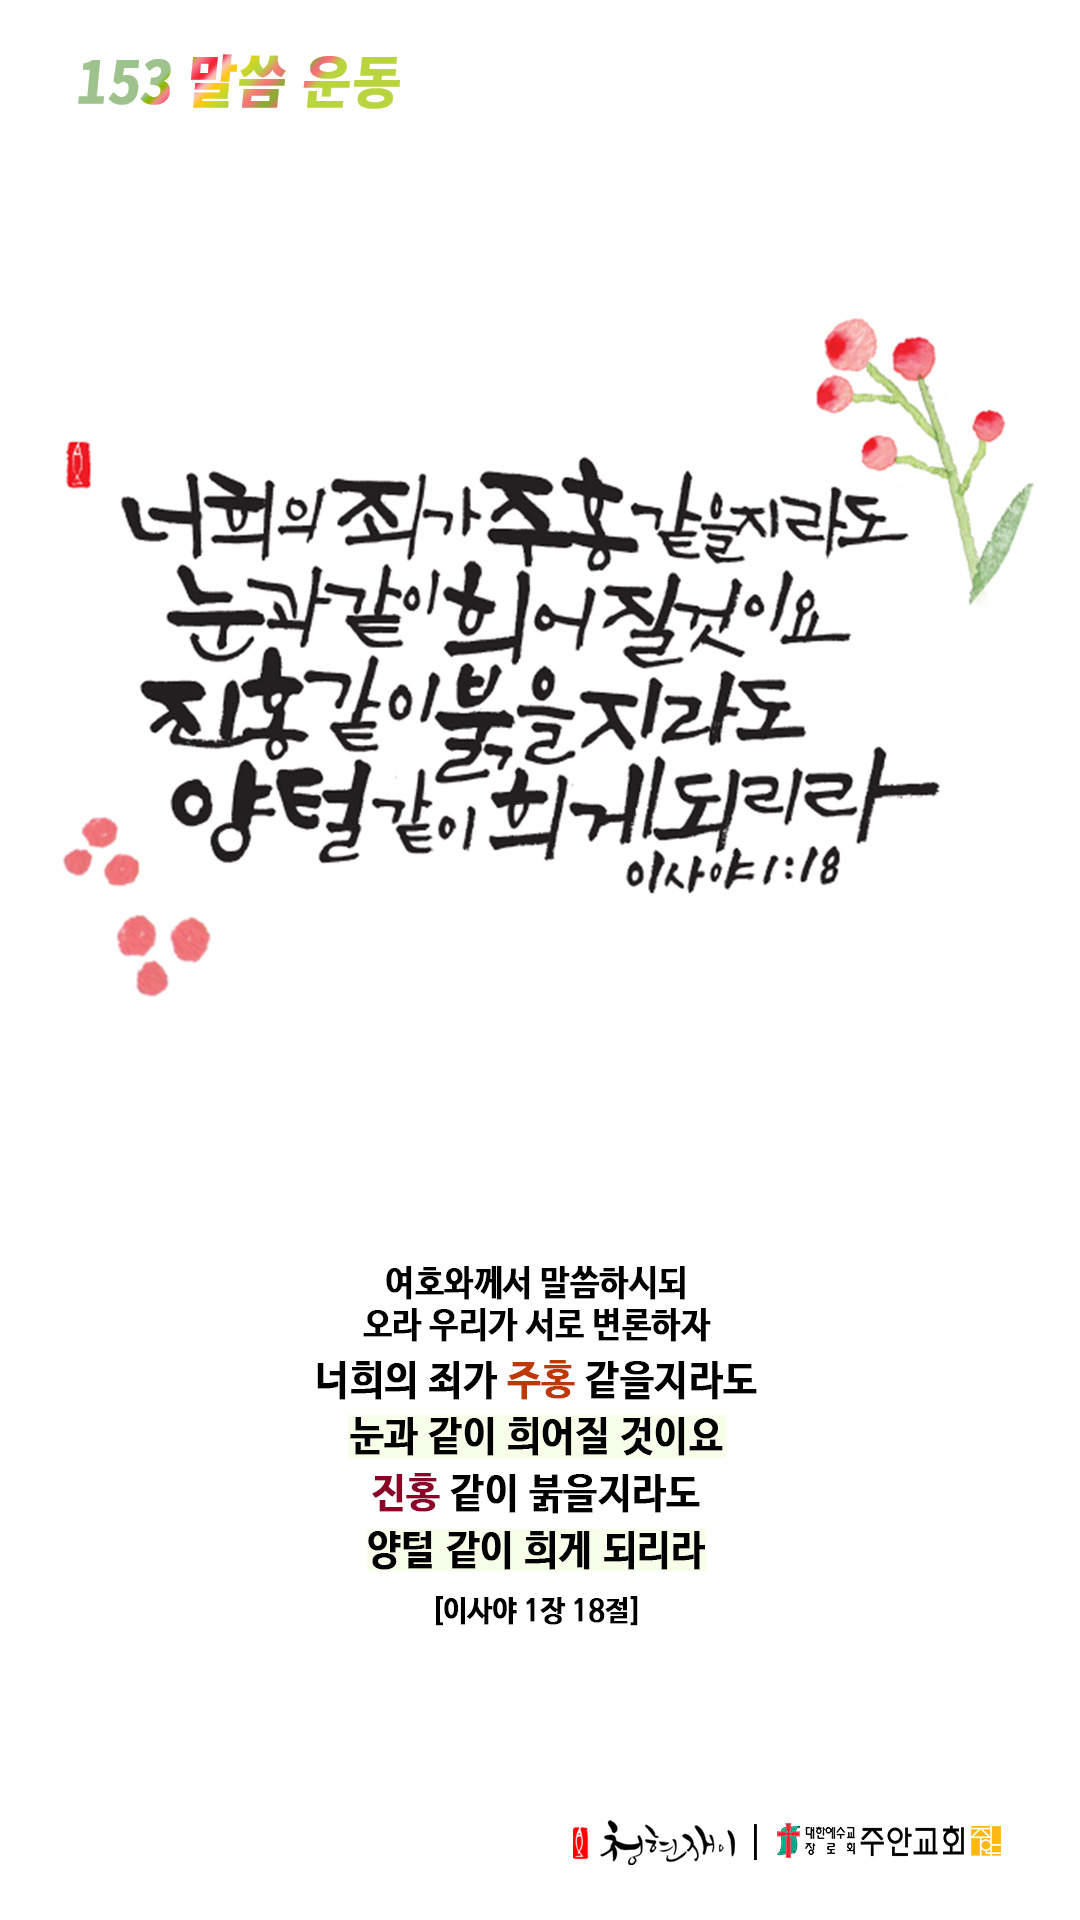 153 말씀 운동
너희의 죄가 주홍 같을지라도
눈과 같이 희어질 것이요
진홍 같이 붉을지라도
양털 같이 희게 되리라
이사야 1:18
여호와께서 말씀하시되
오라 우리가 서로 변론하자
너희의 죄가 주홍 같을지라도
눈과 같이 희어질 것이요
진홍 같이 붉을지라도
양털 같이 희게 되리라
[이사야 1장 18절]
청현재이 | 대한예수교 장로회 주안교회 주안